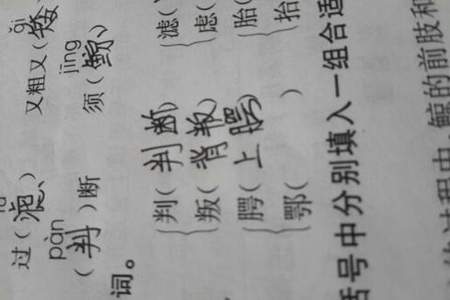 过(滤) 又粗又(矮
pàn jīng
(判)断 须(鲸)
词。
判(判断) 滤(
叛(背叛) 虑(
腭(上腭) 胎(
鄂( ) 抬(
号中分别填入一组合适
过程中,鲸的前肢和